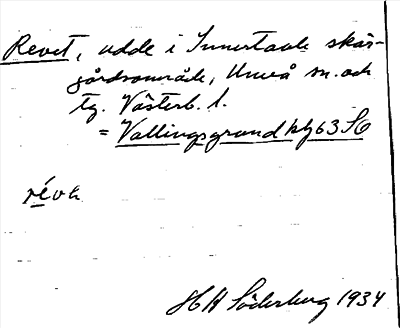 Revet, udde i Innertavle skär-
gårdsområde, Umeå sn. och
tg. Västerb. l.
= Vallingsgrund kbl 63 SO
révə
H H Söderberg 1934